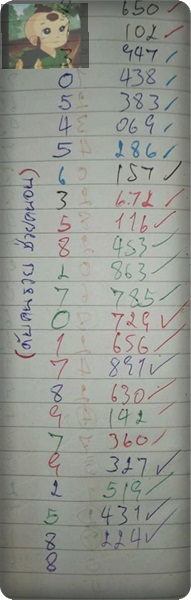 650 ✓
102 ✓
947 ✓
0 438 ✓
5 383 ✓
4 069 ✓
5 286 ✓
6 157 ✓
3 672 ✓
5 116 ✓
8 453 ✓
2 863 ✓
7 785 ✓
0 729 ✓
1 656 ✓
7 891 ✓
8 630 ✓
9 142
7 360 ✓
9 327 ✓
2 519 ✓
5 431 ✓
8 224 ✓
8